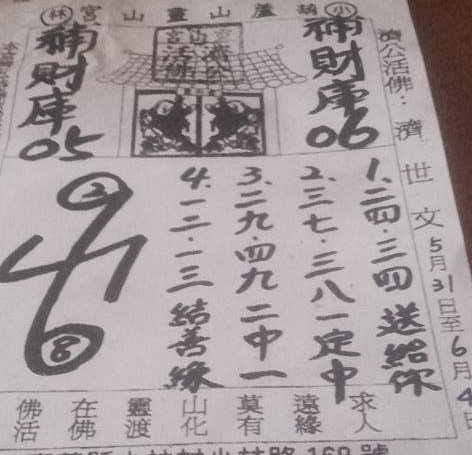 小葫蘆山靈山宮林
濟公活佛:濟世文
5月31日至6月4日
補財庫06
補財庫05
1.二四.三四送給你
2.三七.三八一定中
3.二九.四九二中一
4.一二.一三結善緣
2
41
8
求人
遠緣
莫有
山化
靈渡
在佛
佛活
169號